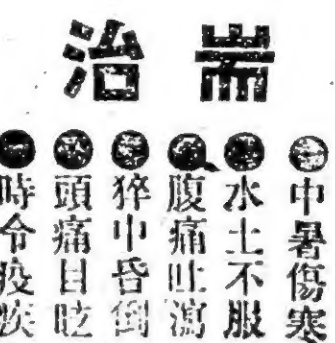 耑治
中暑傷寒
水土不服
腹痛吐瀉
猝中昏倒
頭痛目眩
時令疫疾